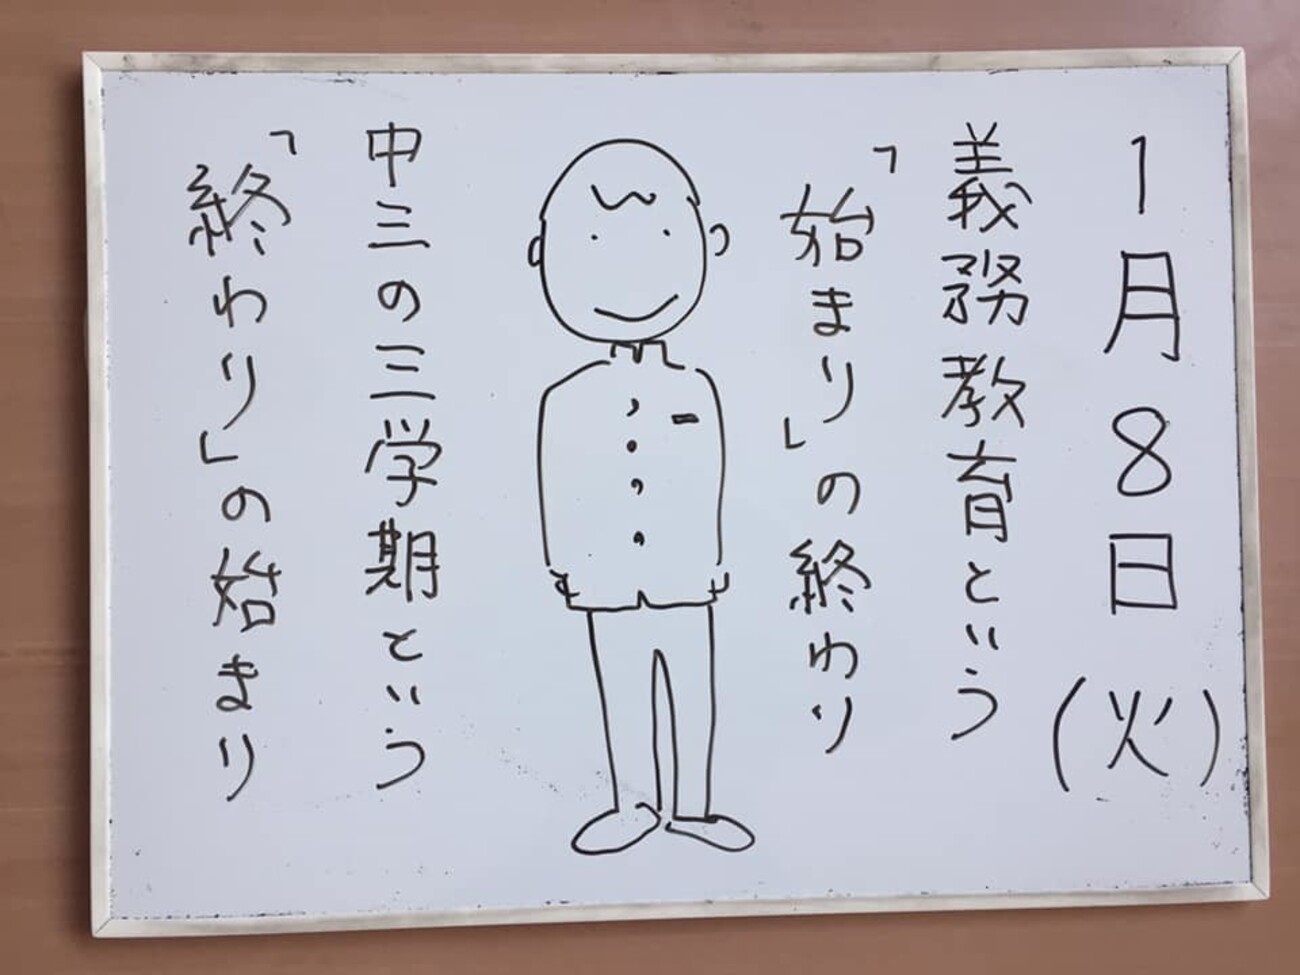 1月8日(火)
義務教育という
「始まり」の終わり
中三の三学期という
「終わり」の始まり